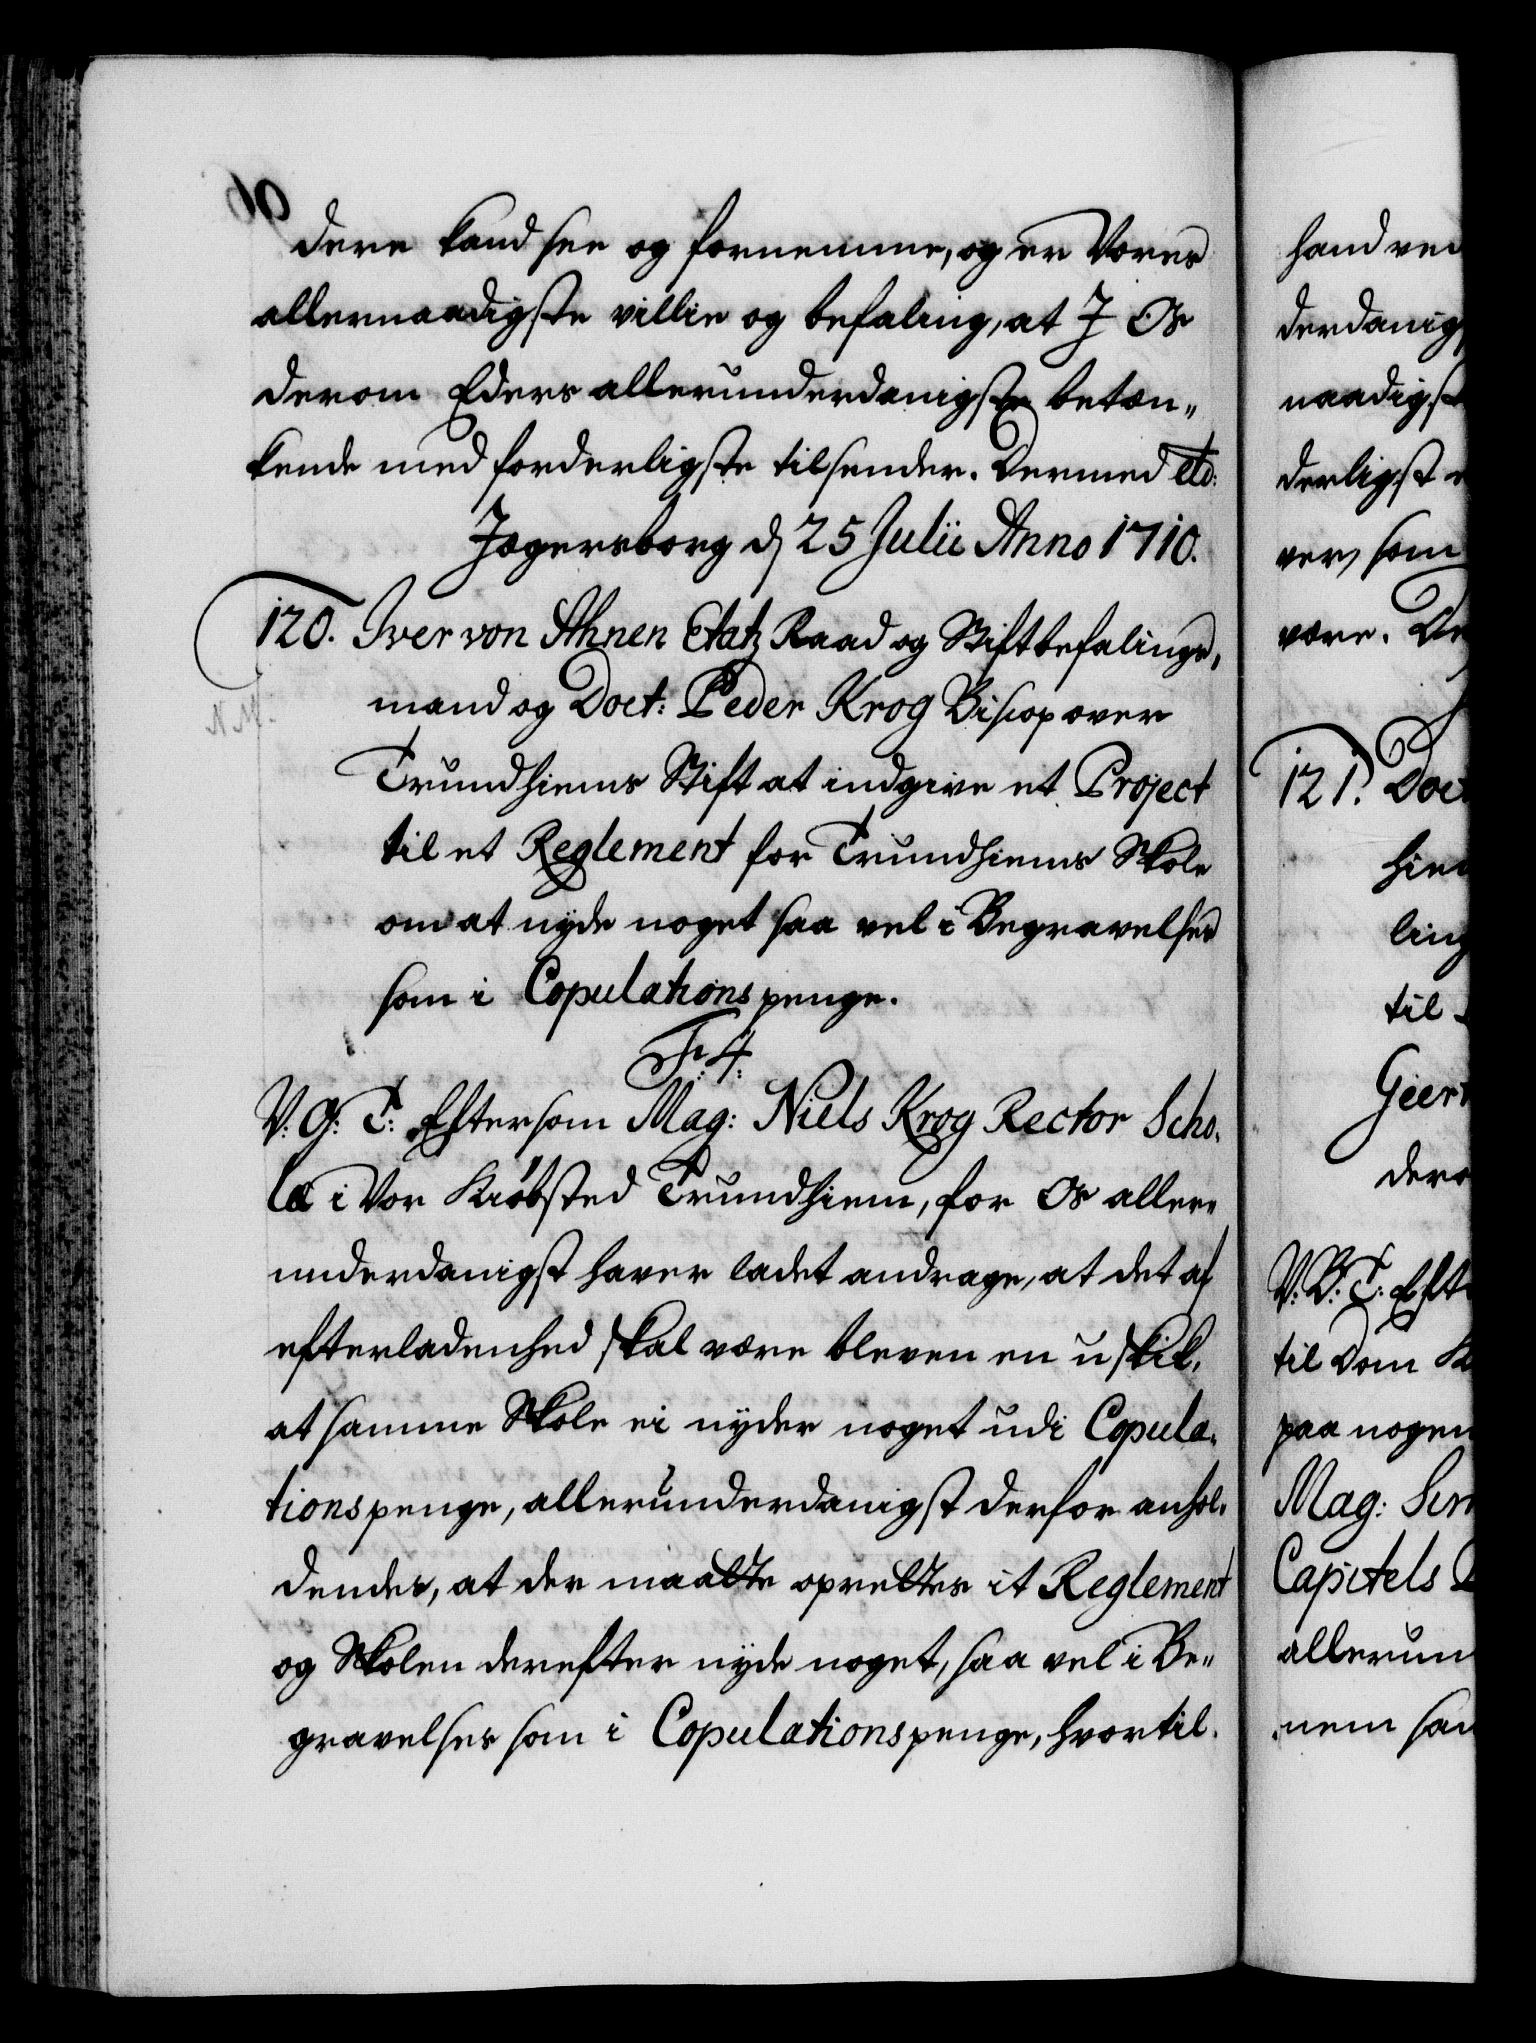 dere kand see og fornemme, og er Vores
allernaadigste villie og befaling, at I Os
derom Eders allerunderdanigste betæn„
kende med forderligste tilsender. Dermed etc:
Jægersborg d 25 Julii Anno 1710.
120. Iver von Ahnen Etatz Raad og Stiftbefalings,
mand og Doct: Peder Krog Biscop over
N.N.
Trundhiems Stift at indgive et Project
til et Reglement for Trundhiems Skole
om at nyde noget saa vel i Begravelses
som i Copulations penge.
F: 4:
V: G: T: Eftersom Mag: Niels Krog Rector Scho,
læ i Vor Kiøbsted Trundhiem, for Os aller„
underdanigst haver ladet andrage, at det af
efterladenhed skal være bleven en uskik,
at samme Skole ei nyder noget udi Copula,
tions penge, allerunderdanigst derfor anhol,
dendes, at der maatte oprettes it Reglement
og Skolen derefter nyde noget, saa vel i Be„
gravelses som i Copulations penge, hvortil.
hand ved
derdanigs
naadigst
derligst
ver, som
være. De
121. Doct
hiem
ling
til
Geert
dero
V: B: T: Eft
til Dom K
paa nogen
Mag:
Capitels
allerun
nem saa